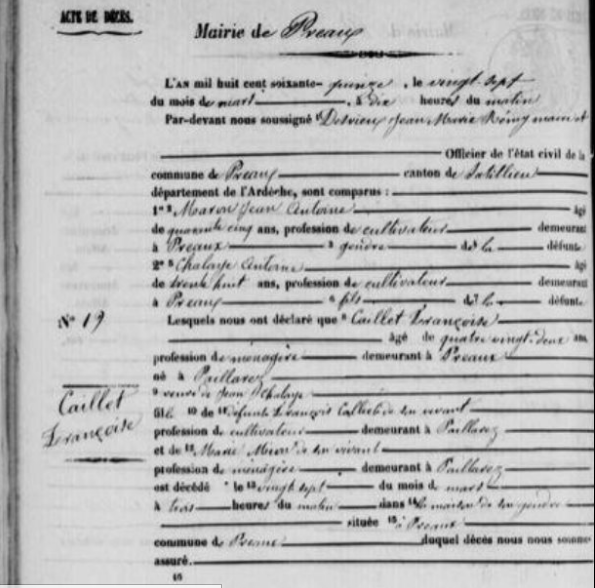 ACTE DE DÉCÈS.
Mairie de Preaux
L'AN mil huit cent soixante- quinze, le vingt sept
du mois de mart, à dix heures du matin
Par-devant nous soussigné Desvieux Jean Marie Rémy maire et
Officier de l'état civil de la
commune de Preaux canton de Satillieu
département de l'Ardèche, sont comparus :
1º Maron Jean Antoine âgé
de quarante cinq ans, profession de cultivateur demeurant
à Preaux gendre de la défunte
2º Chalaye Antoine âgé
de trente huit ans, profession de cultivateur demeurant
à Preaux fils de la défunte.
Nº 19
Lesquels nous ont déclaré que Caillet Françoise
âgé de quatre vingt-deux ans,
profession de menagère demeurant à Preaux
né à Paillarez
Caillet
Françoise
veuve de Jean Chalaye
fille de défunts François de son vivant
profession de cultivateur demeurant à Paillarez
et de Marie de son vivant
profession de ménagère demeurant à Paillarez
est décédé le vingt sept du mois de mars
à trois heures du matin dans la maison de son gendre
située à Preaux
commune de Preaux duquel décès nous nous somme
assuré.